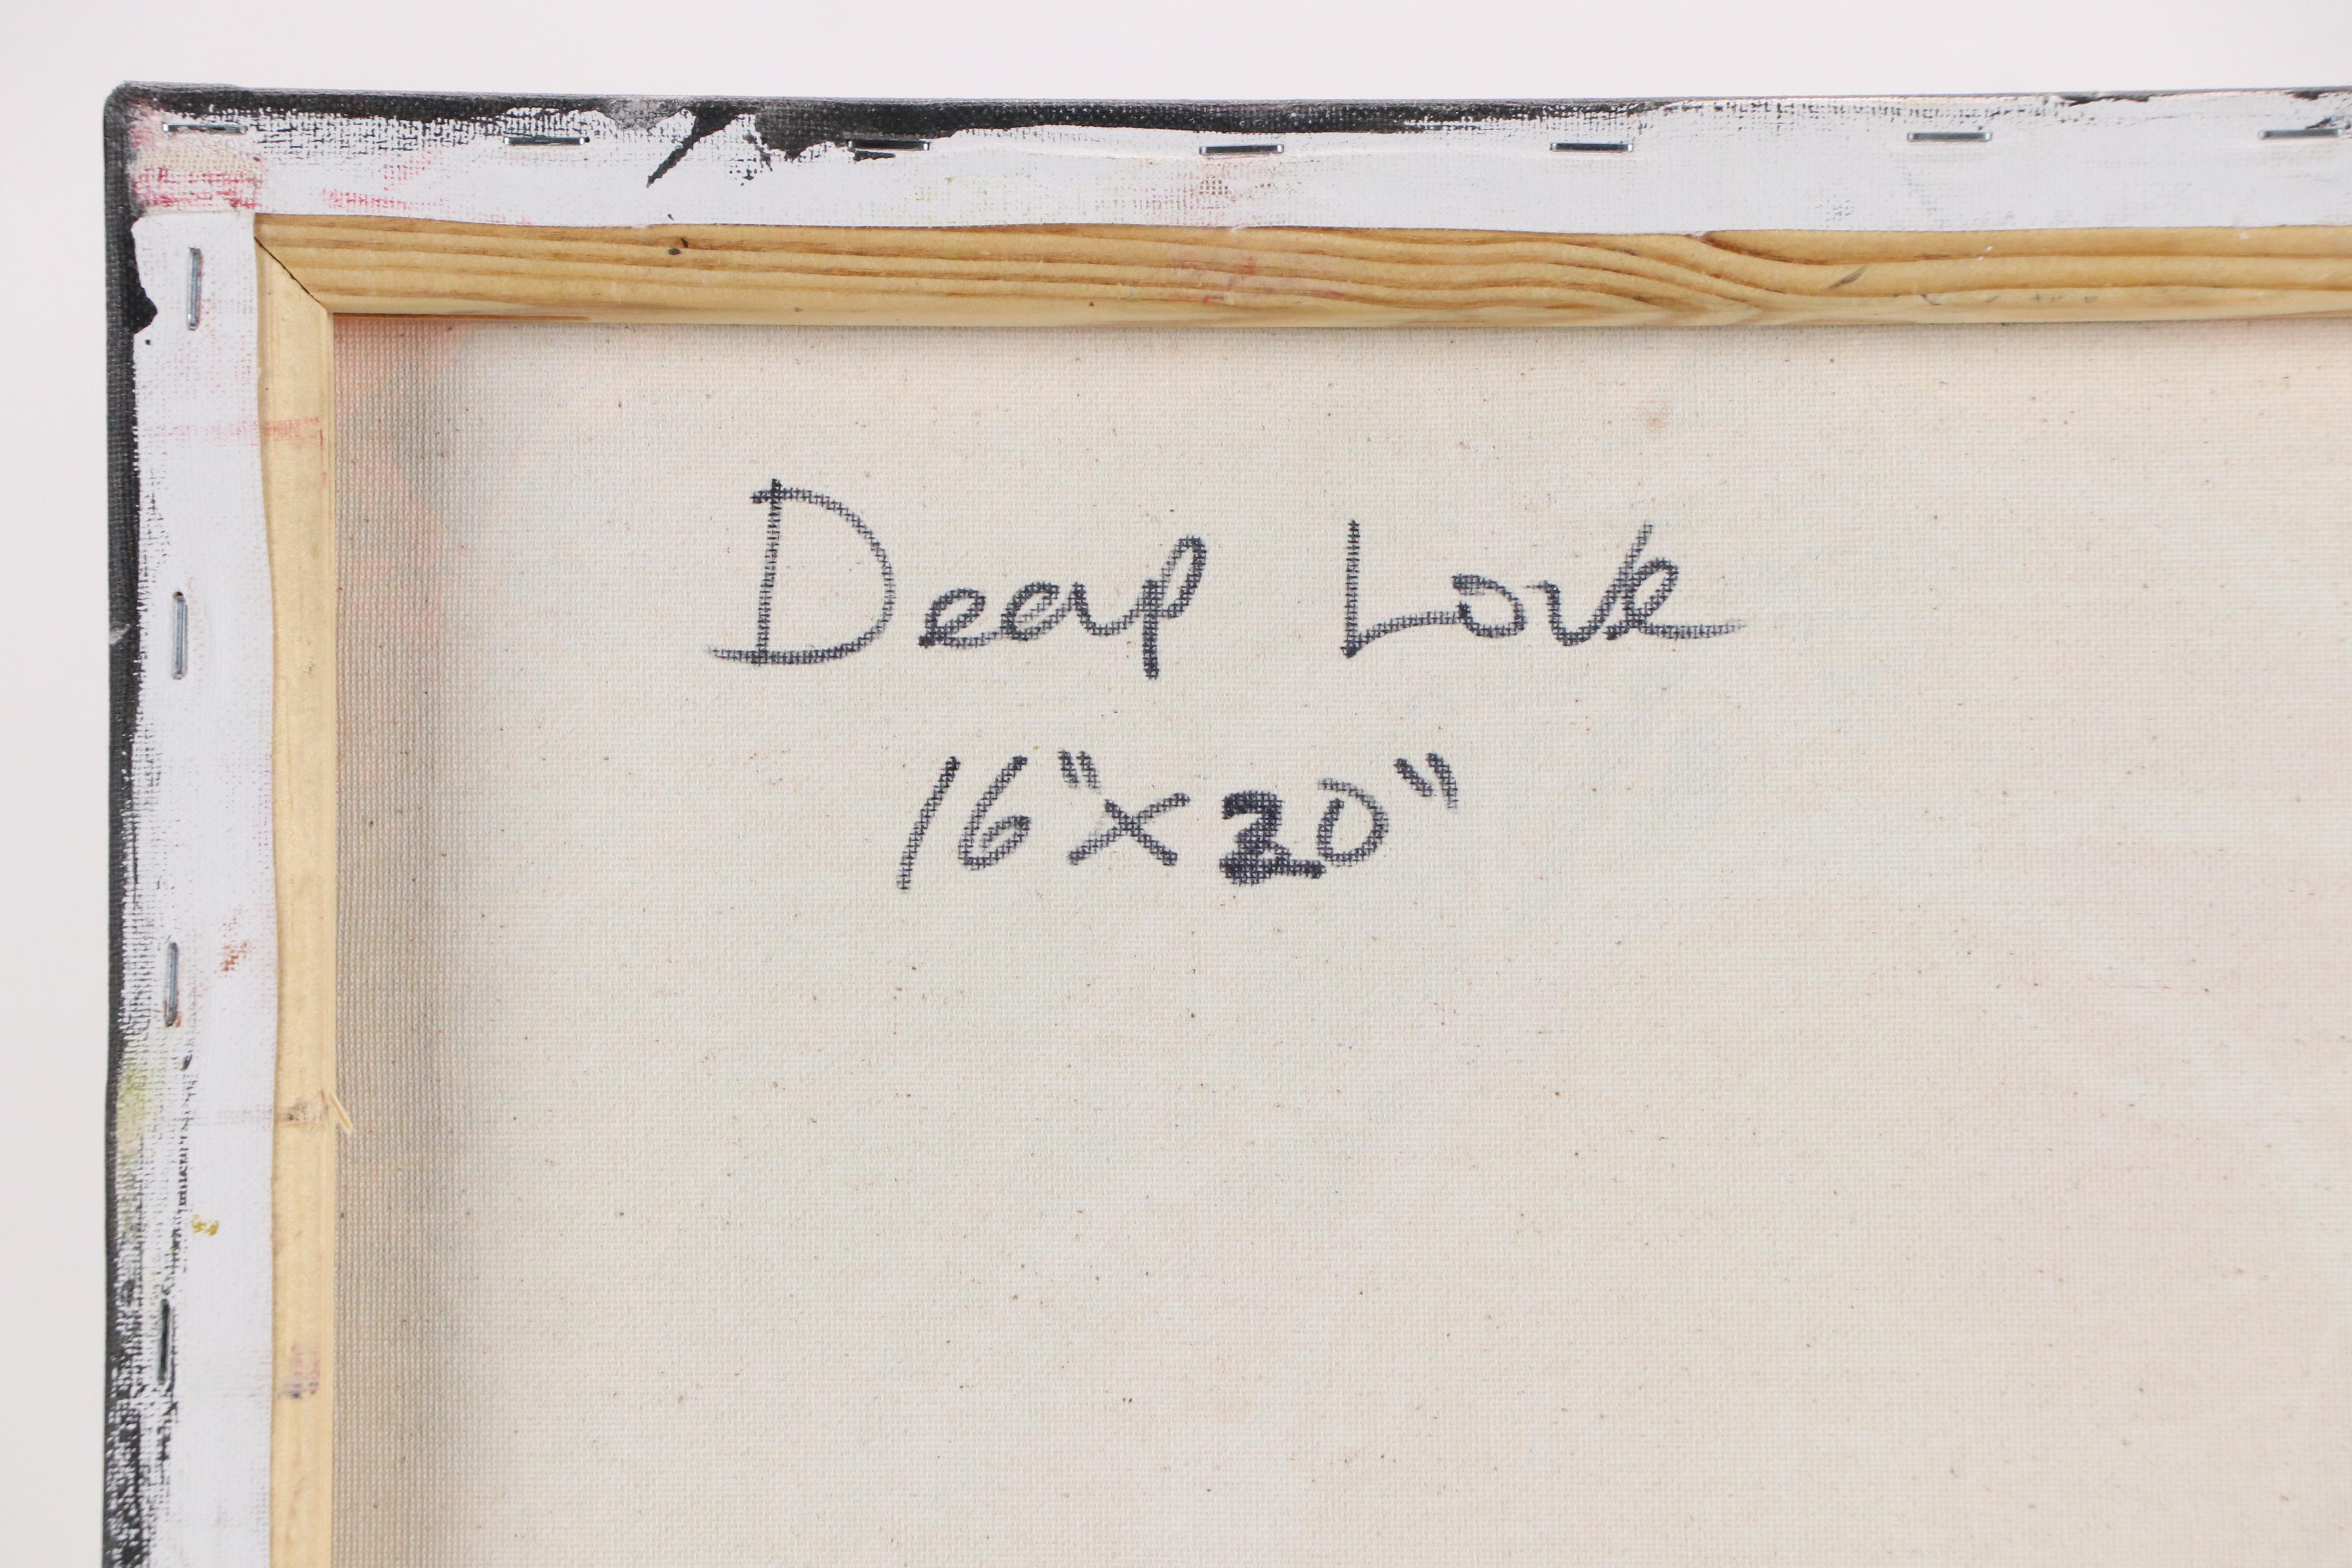 Deep Love
16"x20"